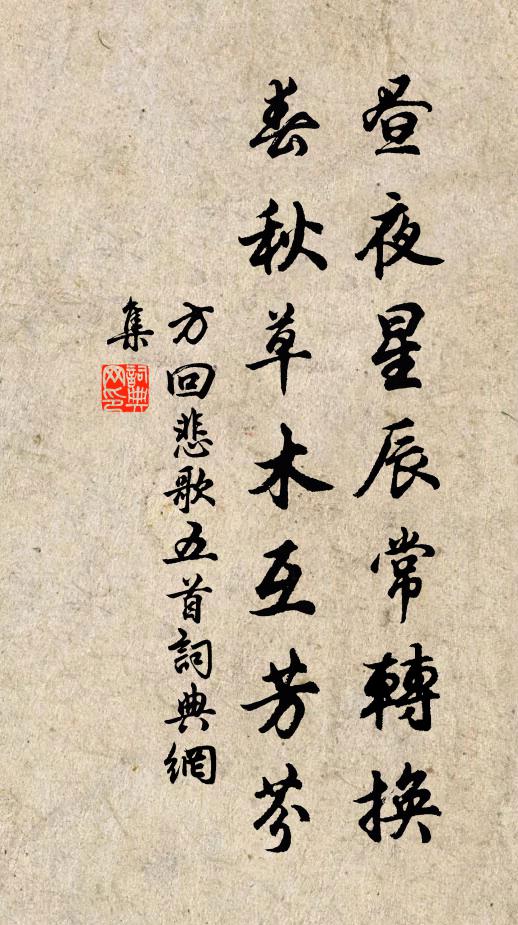 昼夜星辰常轉換
春秋草木互芳芬
方回悲歌五首詞典網
集
詞典
网印